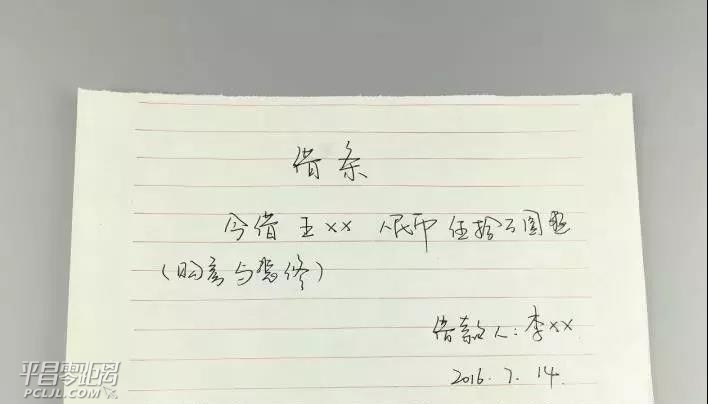 借条
今借王XX 人民币伍拾万圆整
(用于与装修)
借款人:李XX
2016.7.14.
平昌零距离
PCLJL.COM